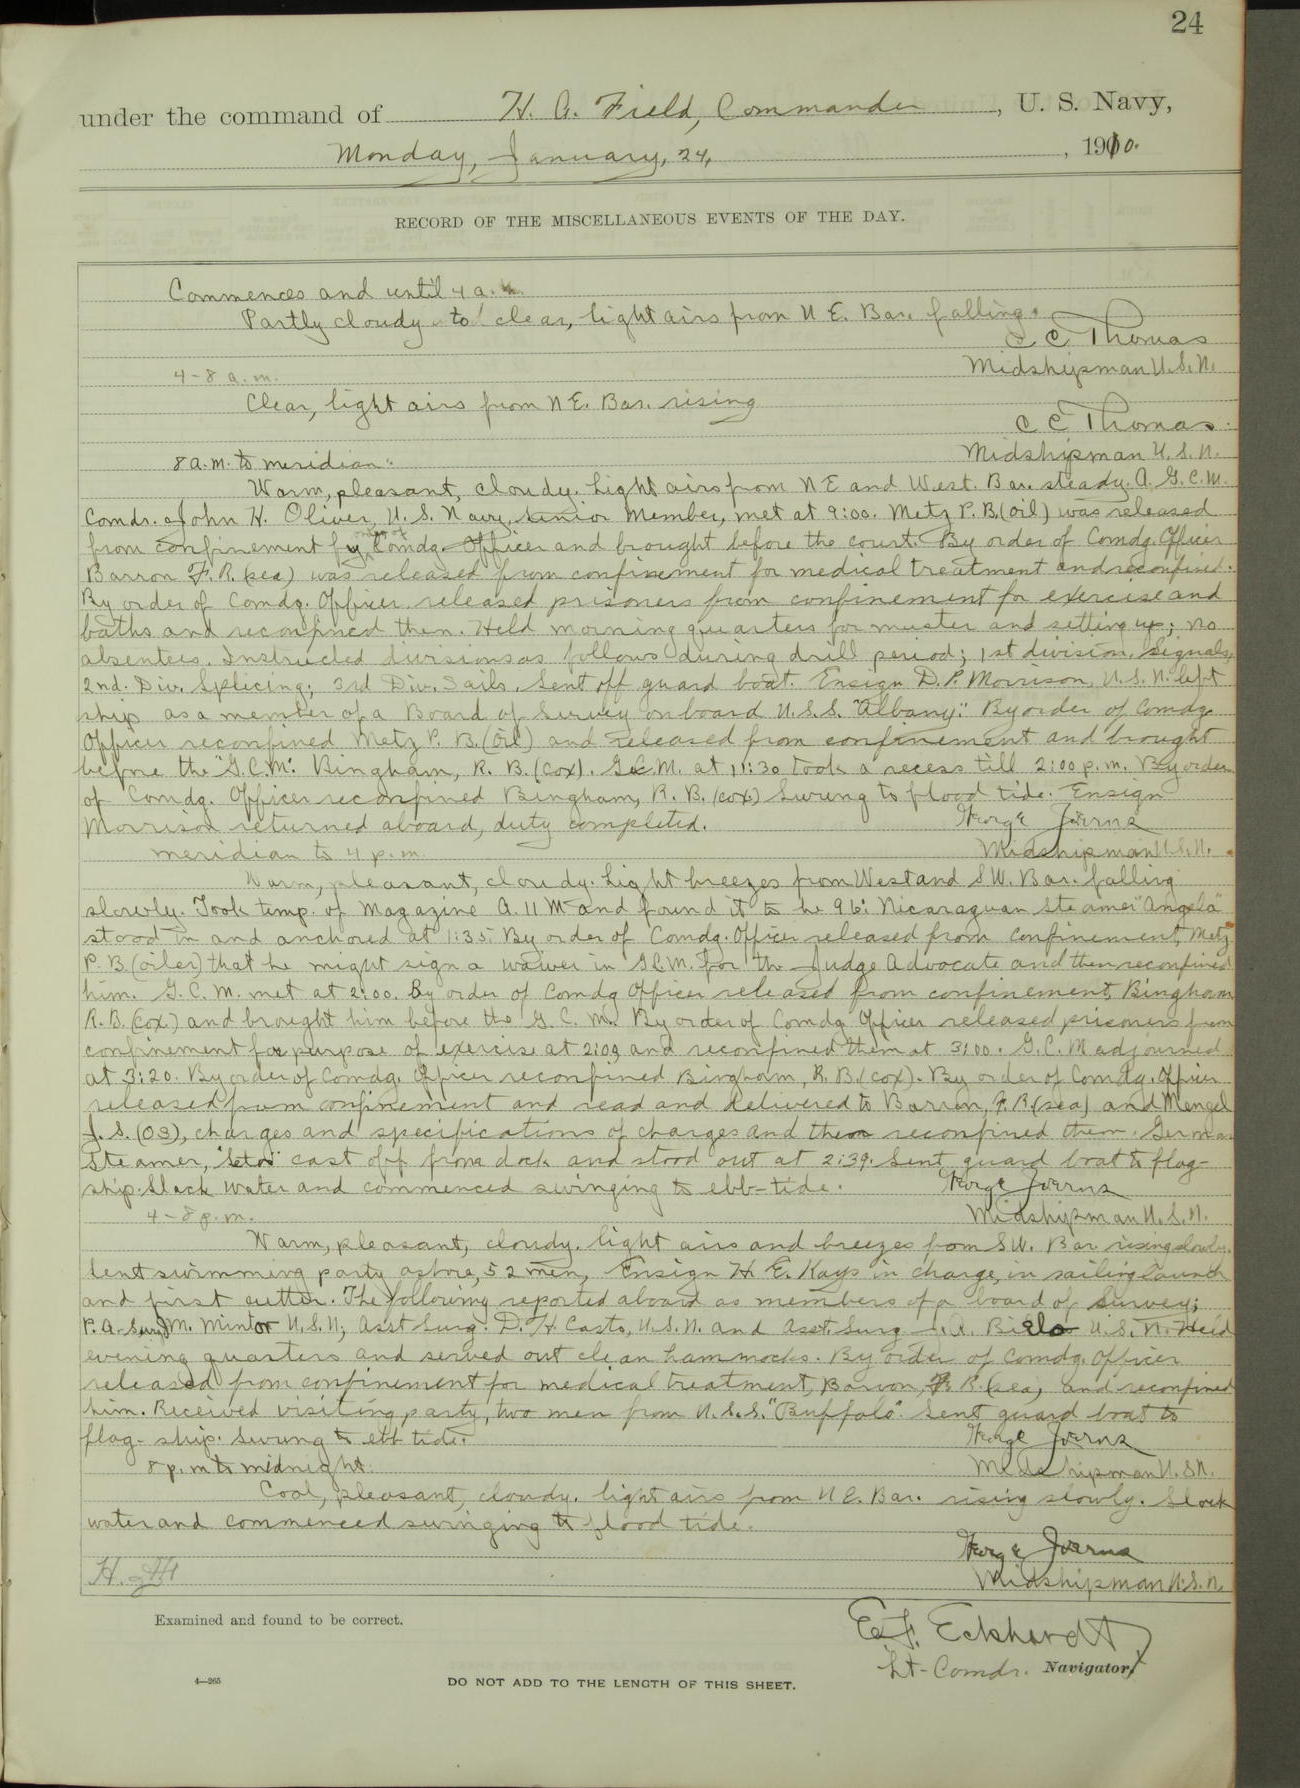 24
under the command of H. A. Field, Commander, U. S. Navy,
Monday, January, 24, 1910.
RECORD OF THE MISCELLANEOUS EVENTS OF THE DAY.
Commences and until 4 a.m.
Partly cloudy to clear, light airs from N E. Bar. falling.
C C Thomas
Midshipman U.S.N.
4-8 a.m.
Clear, light airs from N E. Bar. rising
C C Thomas
Midshipman U.S.N.
8 a.m. to meridian:
Warm, pleasant, cloudy. Light airs from N E and West. Bar. steady. A G.C.M.
Comdr. John H. Oliver, U. S. Navy, senior member, met at 9:00. Metz P. B. (oil) was released
from confinement by order of Comdg. Officer and brought before the court. By order of Comdg. Officer
Barron F. R. (sea) was released from confinement for medical treatment and reconfined.
By order of Comdg. Officer released prisoners from confinement for exercise and
baths and reconfined them. Held morning quarters for muster and setting up; no
absentees. Instructed divisions as follows during drill period; 1st division, signals,
2nd. Div. Splicing; 3rd Div. Sails. Sent off guard boat. Ensign D. P. Morrison, U. S. N. left
ship as a member of a Board of Survey on board U.S.S. "Albany". By order of Comdg
Officer reconfined Metz P. B. (Oil) and released from confinement and brought
before the "G.C.M". Bingham, R. B. (Cox). G.C.M. at 11:30 took a recess till 2:00 p.m. By order
of Comdg. Officer reconfined Bingham, R. B. (cox) Swung to flood tide. Ensign
Morrison returned aboard, duty completed. George
Midshipman U.S.N.
meridian to 4 p.m.
Warm, pleasant, cloudy. Light breezes from West and S W. Bar. falling
slowly. Took temp. of Magazine A. 11 M and found it to be 96°. Nicaraguan steamer "Angela"
stood in and anchored at 1:35. By order of Comdg. Officer released from confinement, Metz
P. B. (oiler) that he might sign a waiver in G.C.M. for the Judge Advocate and then reconfined
him. G. C. M. met at 2:00. By order of Comdg Officer released from confinement, Bingham
R. B. (Cox) and brought him before the G. C. M. By order of Comdg Officer released prisoners from
confinement for purpose of exercise at 2:09 and reconfined them at 3:00. G. C. M adjourned
at 3:20. By order of Comdg. Officer reconfined Bingham, R. B. (cox). By order of Comdg. Officer
released from confinement and read and delivered to Barron, F. R. (sea) and Mengel
J. S. (OS), charges and specifications of charges and then reconfined them. German
steamer, cast off from dock and stood out at 2:39. Sent guard boat to flag-
ship. Slack water and commenced swinging to ebb-tide. George
Midshipman U.S.N.
4-8 p.m.
Warm, pleasant, cloudy. light airs and breezes from S W. Bar rising slowly.
Sent swimming party ashore, 52 men, Ensign H. E. Kays in charge, in sailing launch
and first cutter. The following reported aboard as members of a board of survey;
P. A. Surg. M. Minter U.S.N; Asst Surg. D. H. Casto, U.S.N. and Asst. Surg. J. A. Biello U.S.N. Held
evening quarters and served out clean hammocks. By order of Comdg. Officer
released from confinement for medical treatment, Barron, F. R. (sea) and reconfined
him. Received visiting party, two men from U.S.S. "Buffalo". Sent guard boat to
flag-ship. Swung to ebb tide. George
Midshipman U.S.N.
8 p.m. to midnight.
Cool, pleasant, cloudy. light airs from N E. Bar. rising slowly. Slack
water and commenced swinging to flood tide.
George
Midshipman U.S.N.
Examined and found to be correct.
E. F. Eckhardt
Lt-Comdr. Navigator
4—265
DO NOT ADD TO THE LENGTH OF THIS SHEET.